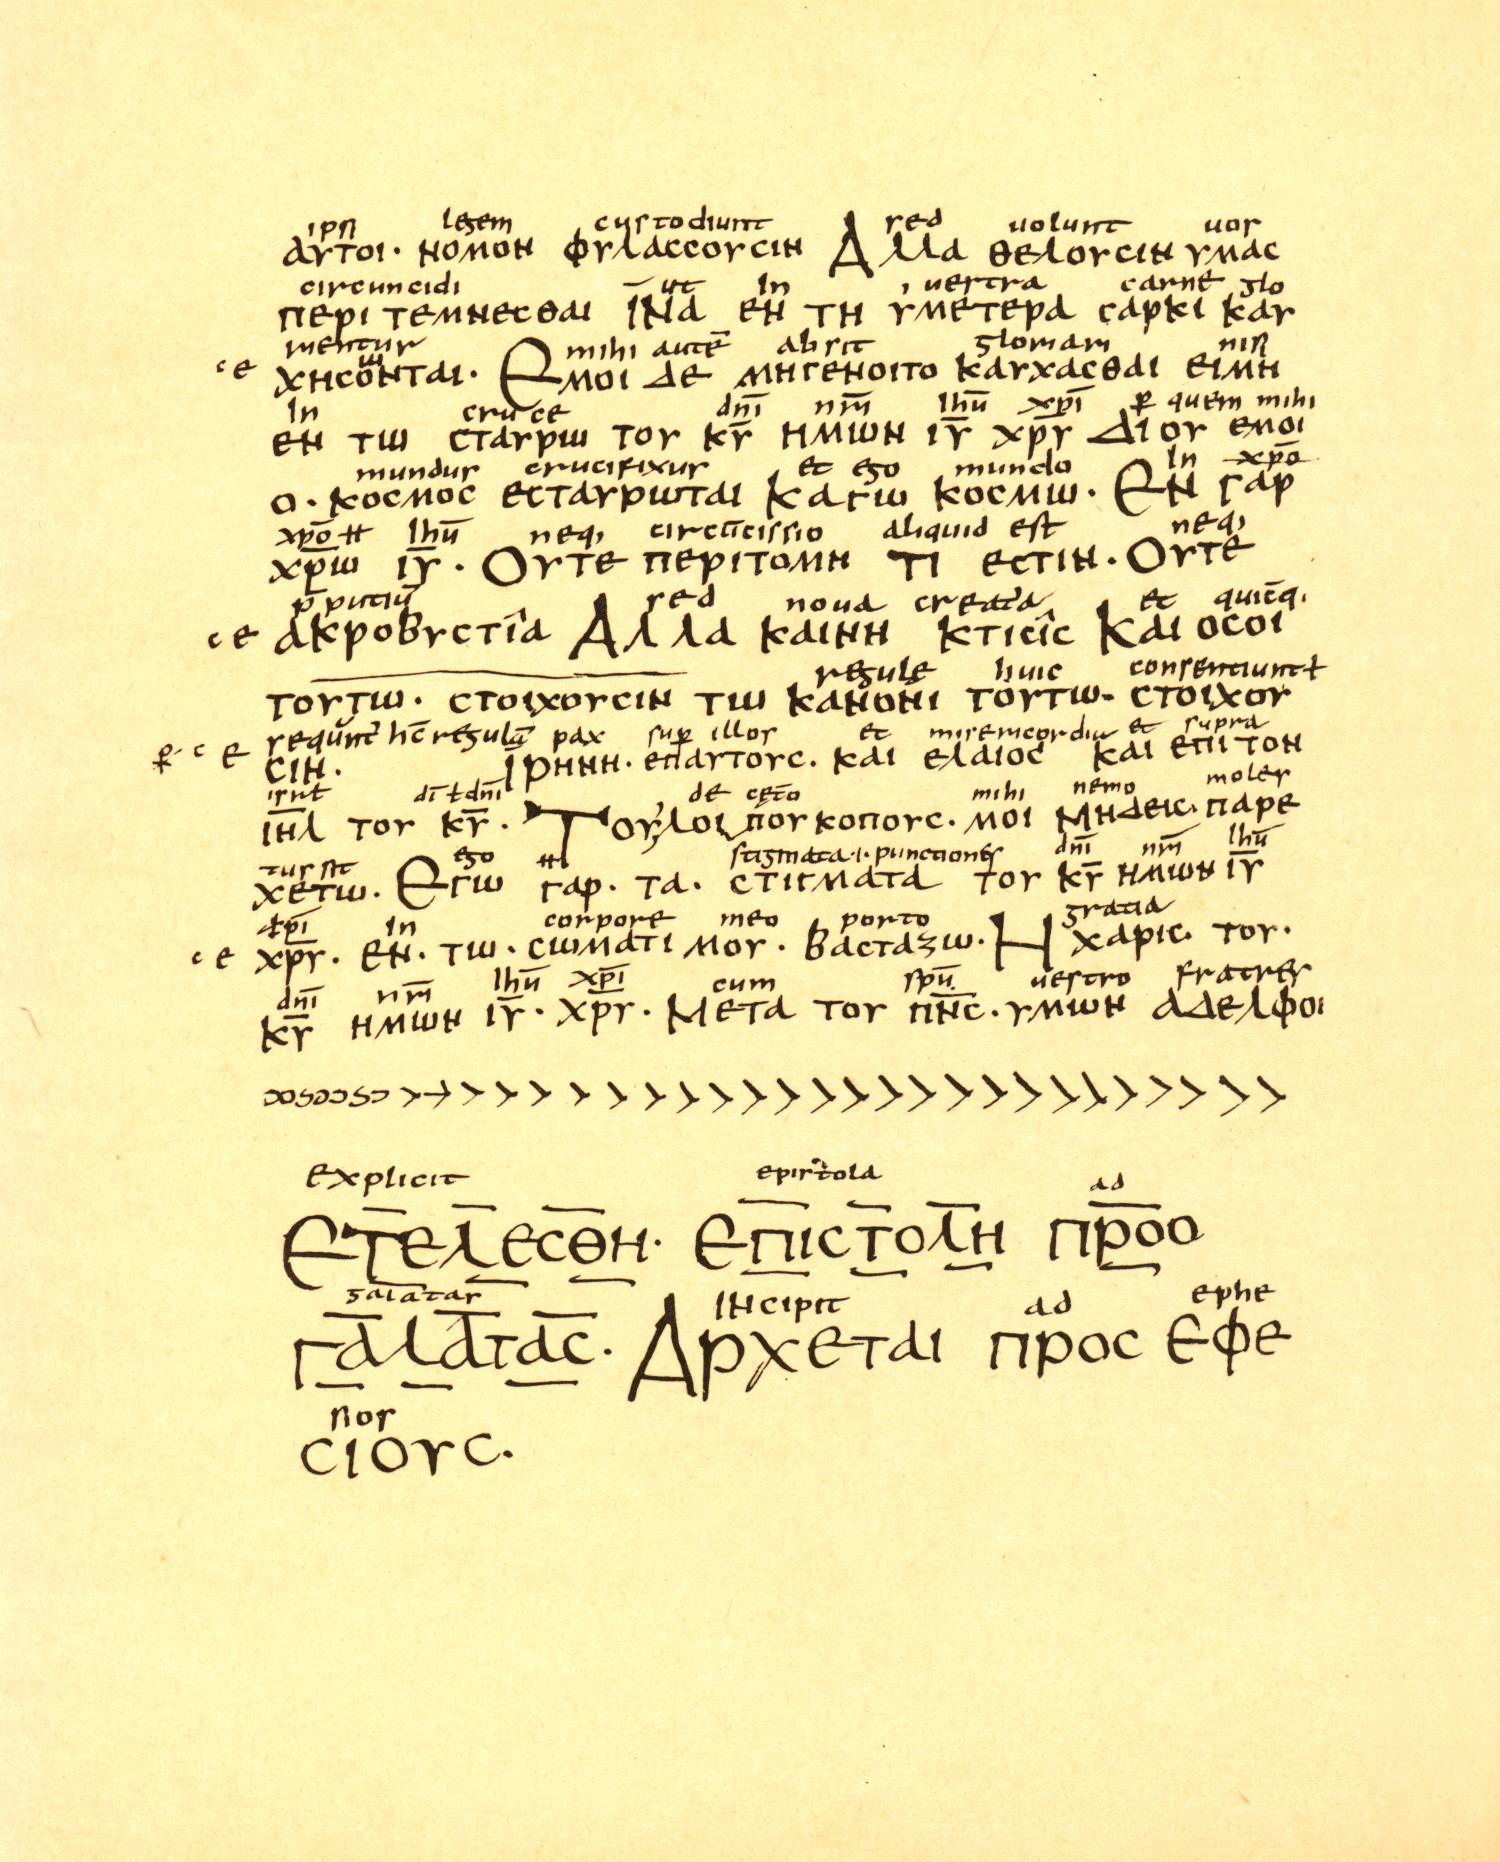 ipsi legem custodiunt sed uolunt uos
αυτοι· νομον φυλαccουcιν Αλλα θελουcιν υμαc
circuncidi ut In uestra carne glo
περιτεμνεcθαι ῙΝα εν τη υμετερα cαρκι καυ
rientur mihi autē absit gloriari nisi
χηcονται· Εμοι δε μηγενοιτο καυχαcθαι ειμη
In cruce dn̄i nr̄i Ihū xp̄i ꝑ quem mihi
εν τω cταυρω του κ̄υ ημων ῑυ χ̄ρυ Δι ου εμοι
mundus crucifixus et ego mundo In xp̄o
ο· κοcμοc εcταυρωται Καγω κοcμω· Εν γαρ
xp̄o Ihū neq; circūcissio aliquid est neq;
χ̄ρω ῑυ· Ουτε περιτομη τι εcτιν· Ουτε
p̄putiū sed noua creata et quicūq;
ακροβυcτια Αλλα καινη κτιcιc Και οcοι
regule huic consentiunt ł
τουτω· cτοιχουcιν τω κανονι τουτω· cτοιχου
sequntr̄ hc̄ regulā pax suꝑ illos et misericordia et supra
cιν· Ιρηνη· επαυτουc· και ελαιοc και επι τον
isrł dī ł dn̄i de cet̄o mihi nemo moles
ῑηλ του κ̄υ· Τουλοιπου κοπουc· μοι Μηδειc· παρε
tus sit ego stigmata ·i· punctiones dn̄i nr̄i Ihū
χετω· Εγω γαρ· τα· cτιγματα του κ̄υ ημων ῑυ
xp̄i In corpore meo porto gratia
χ̄ρυ· εν· τω· cωματι μου· βαcταζω· Η χαριc· του·
dn̄i nr̄i Ihū xp̄i cum sp̄ū uestro fratres
κ̄υ ημων ῑυ· χ̄ρυ· Μετα του π̄νc· υμων αδελφοι
explicit epistola ad
Ετελεcθη· Επιcτολη προc
galatas Incipit ad ephe
γαλαταc· Αρχεται προc εφε
sios
cιουc·